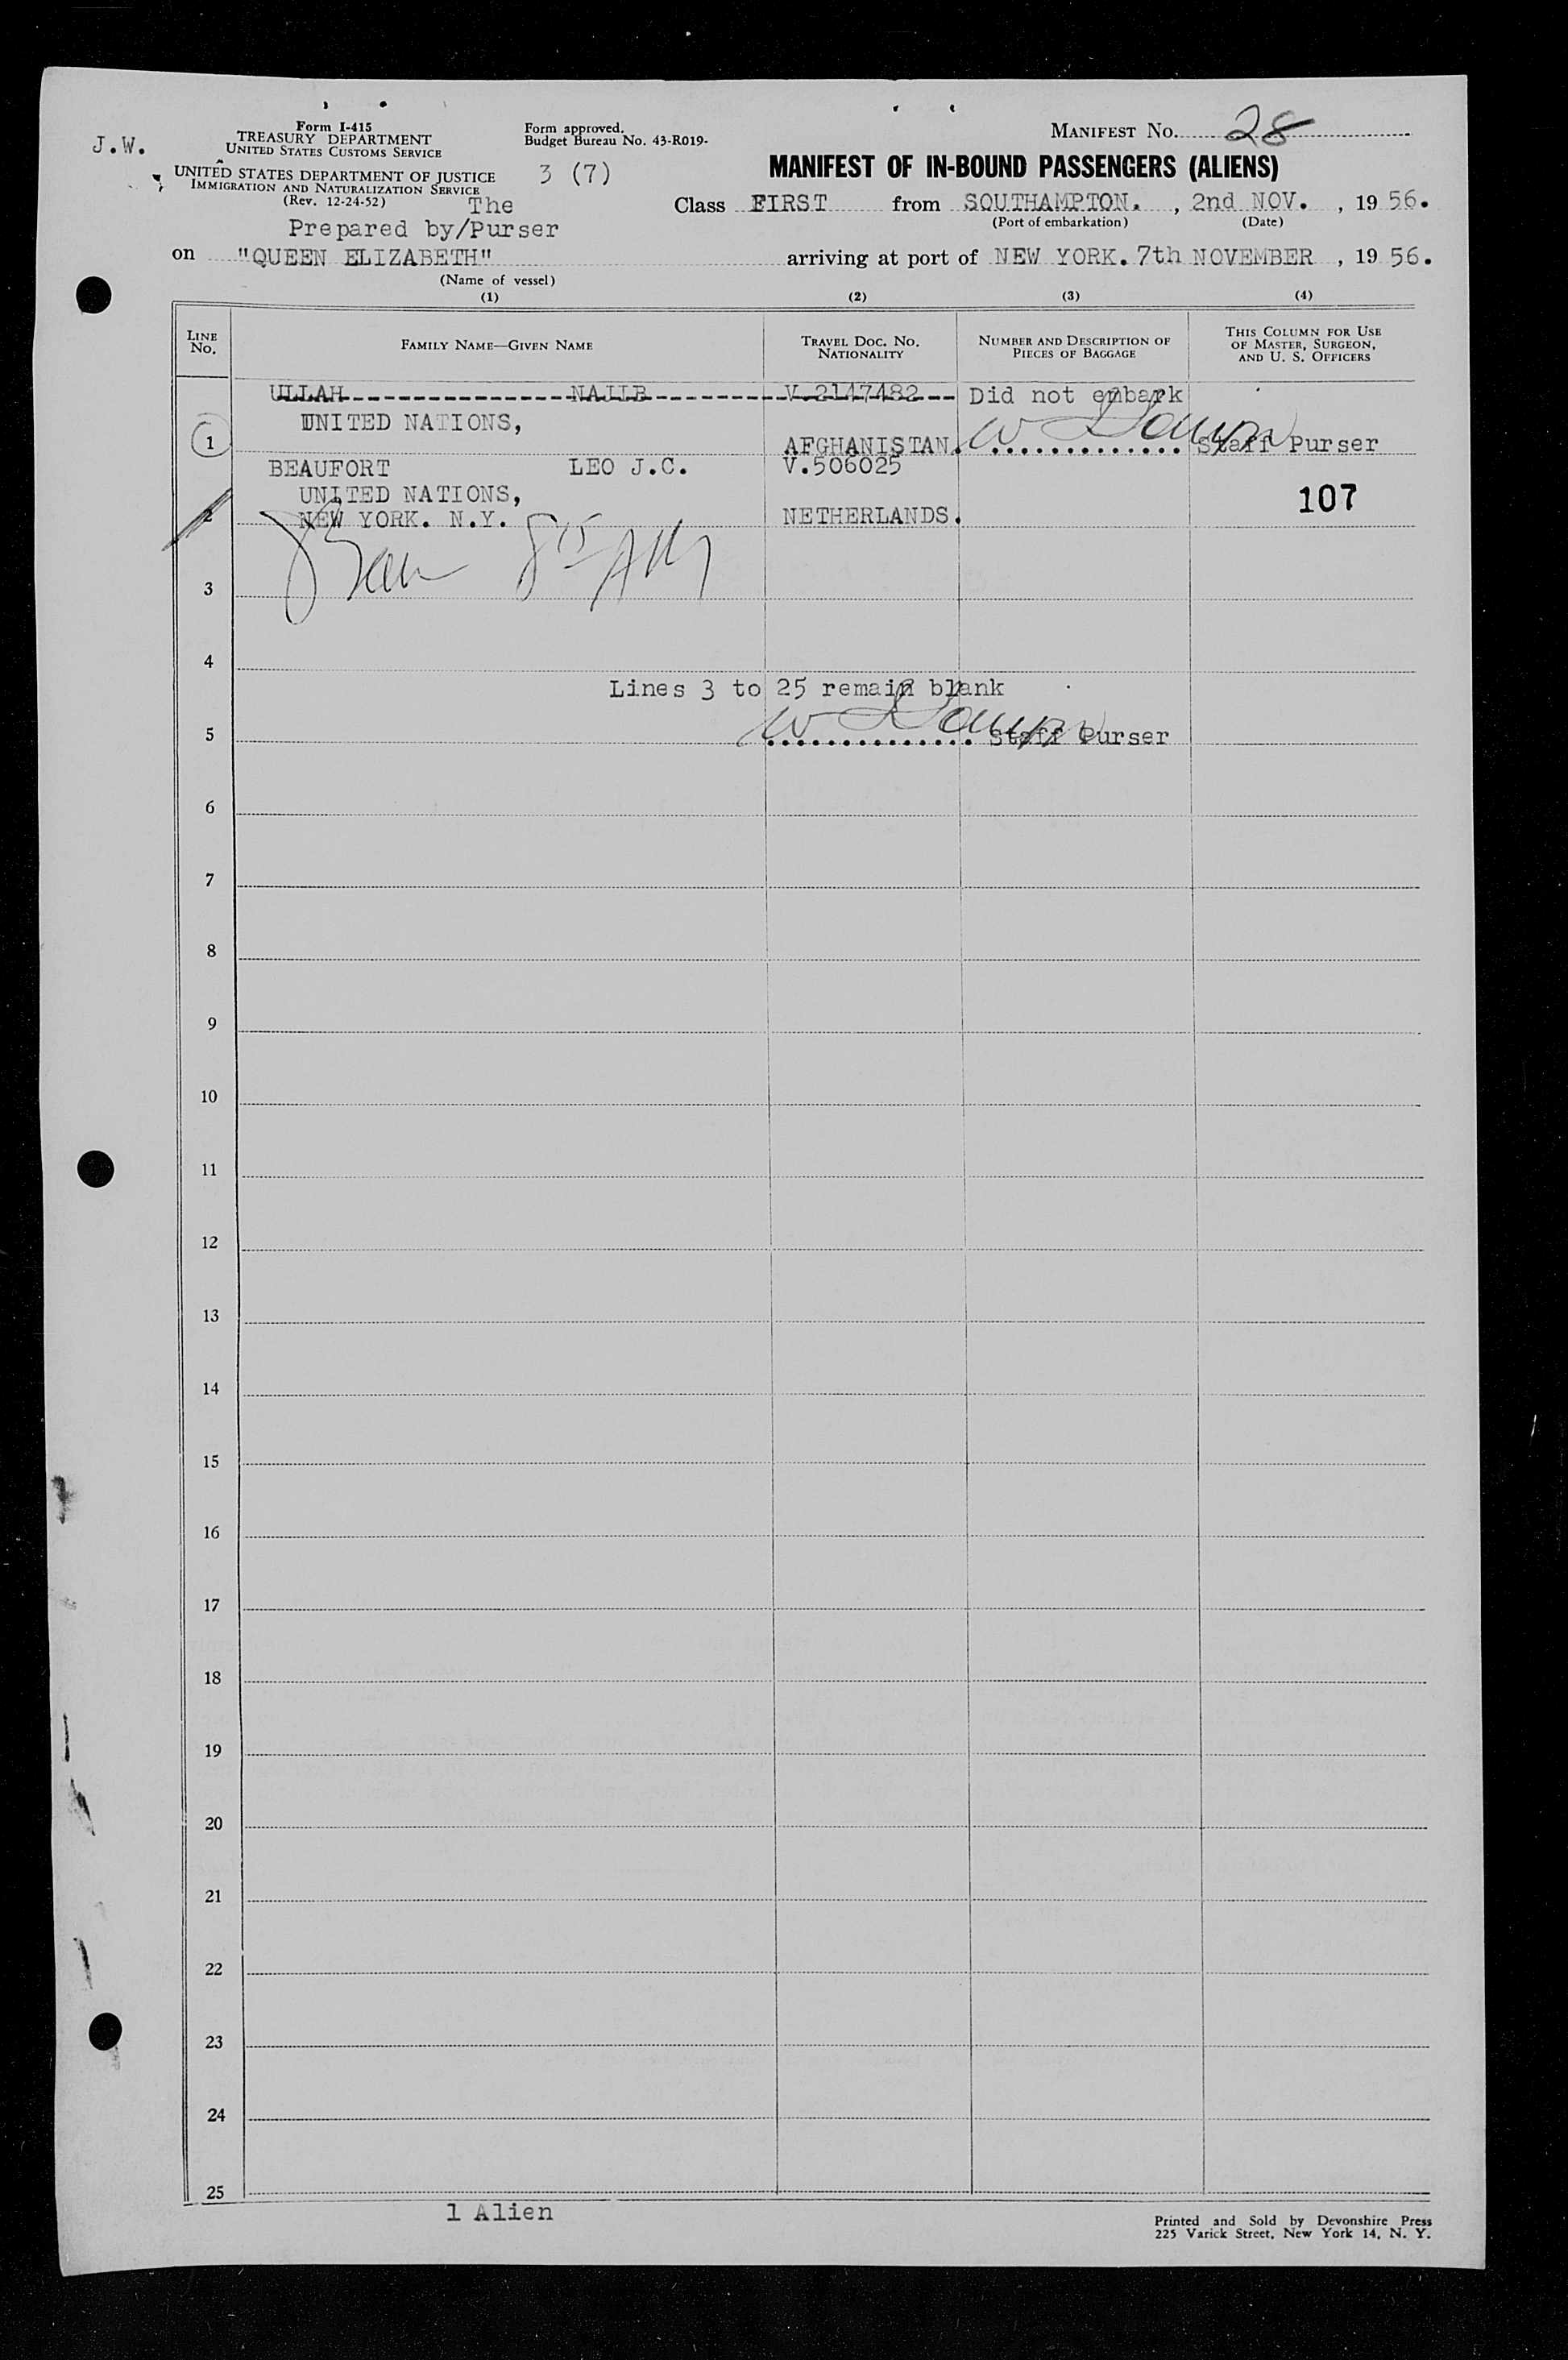 J.W.
Form I-415
TREASURY DEPARTMENT
UNITED STATES CUSTOMS SERVICE
UNITED STATES DEPARTMENT OF JUSTICE
IMMIGRATION AND NATURALIZATION SERVICE
(Rev. 12-24-52)
Form approved.
Budget Bureau No. 43-R019-
3 (7)
MANIFEST No. 28
MANIFEST OF IN-BOUND PASSENGERS (ALIENS)
The
Prepared by/Purser
Class FIRST from SOUTHAMPTON. , 2nd NOV. , 19 56.
(Port of embarkation) (Date)
on "QUEEN ELIZABETH" arriving at port of NEW YORK. 7th NOVEMBER , 19 56.
(Name of vessel)
(1) (2) (3) (4)
LINE No.
FAMILY NAME—GIVEN NAME
TRAVEL DOC. No. NATIONALITY
NUMBER AND DESCRIPTION OF PIECES OF BAGGAGE
THIS COLUMN FOR USE OF MASTER, SURGEON, AND U. S. OFFICERS
ULLAH NAJIB V.2147482 Did not embark
UNITED NATIONS,
1 AFGHANISTAN. Staff Purser
BEAUFORT LEO J.C. V.506025
UNITED NATIONS, 107
2 NEW YORK. N.Y. NETHERLANDS.
3
4
Lines 3 to 25 remain blank
5 Staff Purser
6
7
8
9
10
11
12
13
14
15
16
17
18
19
20
21
22
23
24
25
1 Alien
Printed and Sold by Devonshire Press
225 Varick Street, New York 14, N. Y.